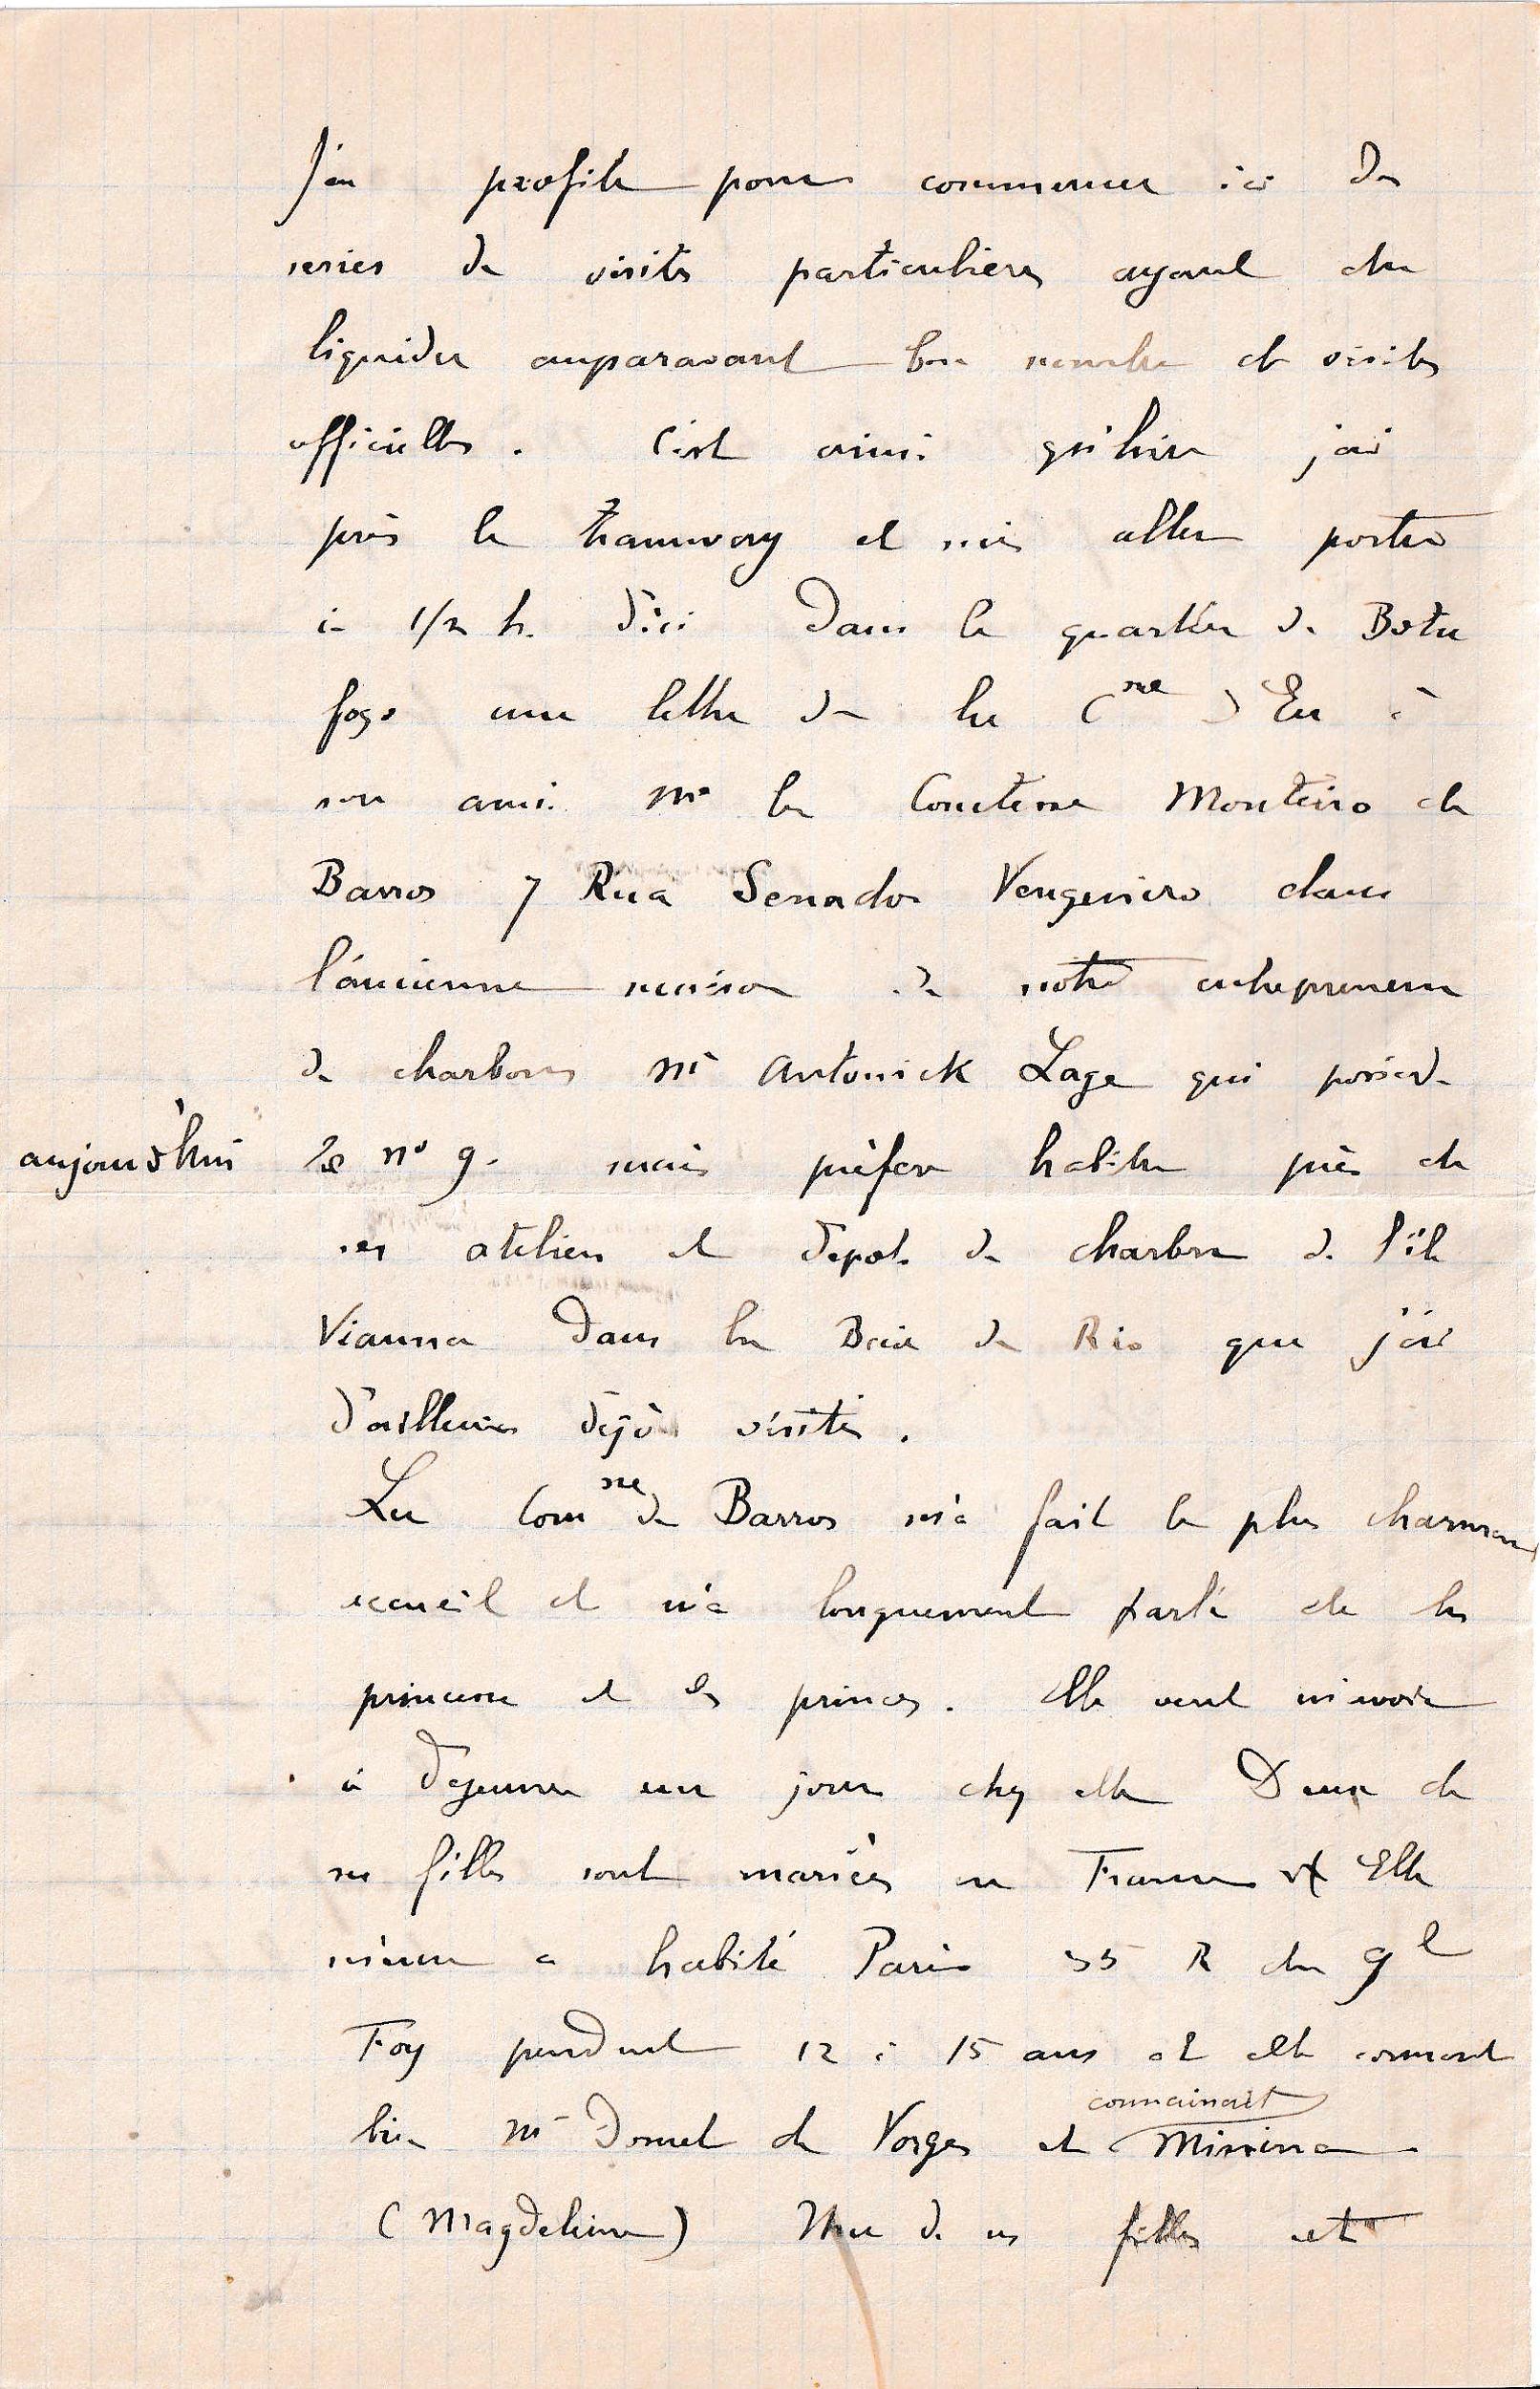 J'en profite pour commencer ici des
series de visites particulieres ayant du
liquider auparavant bon nombre de visites
officielles. C'est ainsi qu'hier j'ai
pris le tramway et suis aller porter
à 1/2 h. d'ici dans le quartier de Bota
fogo une lettre de la Csse d'Eu à
son amie Me la Comtesse Monteiro de
Barros 7 Rua Senador Vergueiro dans
l'ancienne maison de notre entrepreneur
de charbons Mr Antonick Lage qui possede
aujourd'hui le no 9. mais préfere habiter près de
ses ateliers et depot de charbon de l'ile
Vianna dans la Baie de Rio que j'ai
d'ailleurs dejà visitée.
La Comsse de Barros m'a fait le plus charmant
accueil et m'a longuement parlé de la
princesse et des princes. Elle veut m'avoir
à dejeuner un jour chez elle Deux de
ses filles sont mariées en France et Elle
même a habité Paris 35 R du Gl
Foy pendant 12 à 15 ans et elle connait
bien Mr Domet de Vorges et connaissait
(Magdeleine) Une de ses filles est